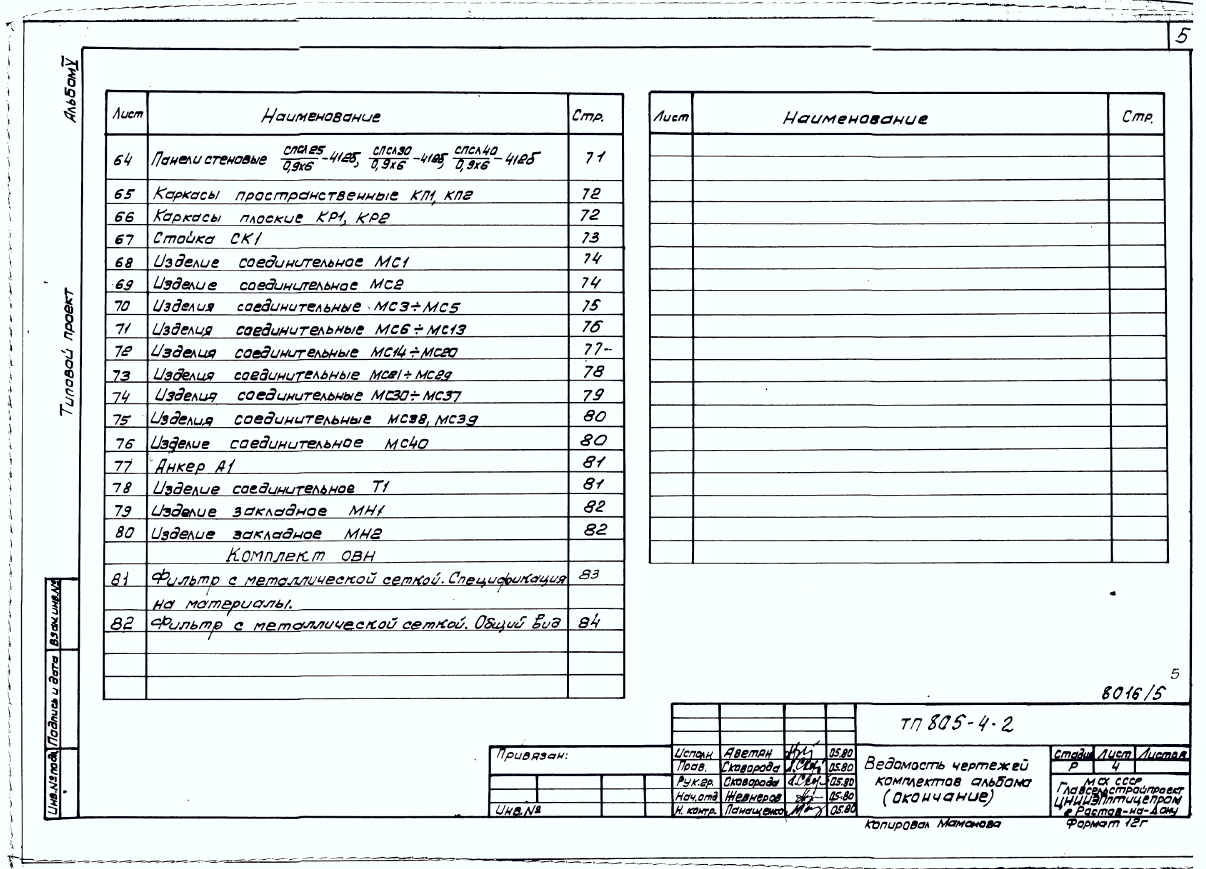 5
Альбом V
Типовой проект
Лист Наименование Стр.
64 Панели стеновые СПСЛ25/0,9х6-41обб, СПСЛ30/0,9х6-41обб, СПСЛ40/0,9х6-41обб 71
65 Каркасы пространственные КП1, КП2 72
66 Каркасы плоские КР1, КР2 72
67 Стойка СК1 73
68 Изделие соединительное МС1 74
69 Изделие соединительное МС2 74
70 Изделия соединительные МС3÷МС5 75
71 Изделия соединительные МС6÷МС13 76
72 Изделия соединительные МС14÷МС20 77
73 Изделия соединительные МС21÷МС29 78
74 Изделия соединительные МС30÷МС37 79
75 Изделия соединительные МС38, МС39 80
76 Изделие соединительное МС40 80
77 Анкер А1 81
78 Изделие соединительное Т1 81
79 Изделие закладное МН1 82
80 Изделие закладное МН2 82
Комплект ОВН
81 Фильтр с металлической сеткой. Спецификация 83
на материалы.
82 Фильтр с металлической сеткой. Общий вид 84
Лист Наименование Стр.
5
8016/5
Инв.№ подл. Подпись и дата Взам.инв.№
Привязан:
Инв.№
ТП 805-4-2
Исполн Аветян 05.80
Пров. Сковорода 05.80
Рук.гр. Сковорода 05.80
Нач.отд Жевнеров 05.80
Н. контр. Панащенко 05.80
Ведомость чертежей
комплектов альбома
(окончание)
Стадия Лист Листов
Р 4
МСХ СССР
Главсельстройпроект
ЦНИИЭПптицепром
г Ростов-на-Дону
Копировал Мамонова Формат 12г